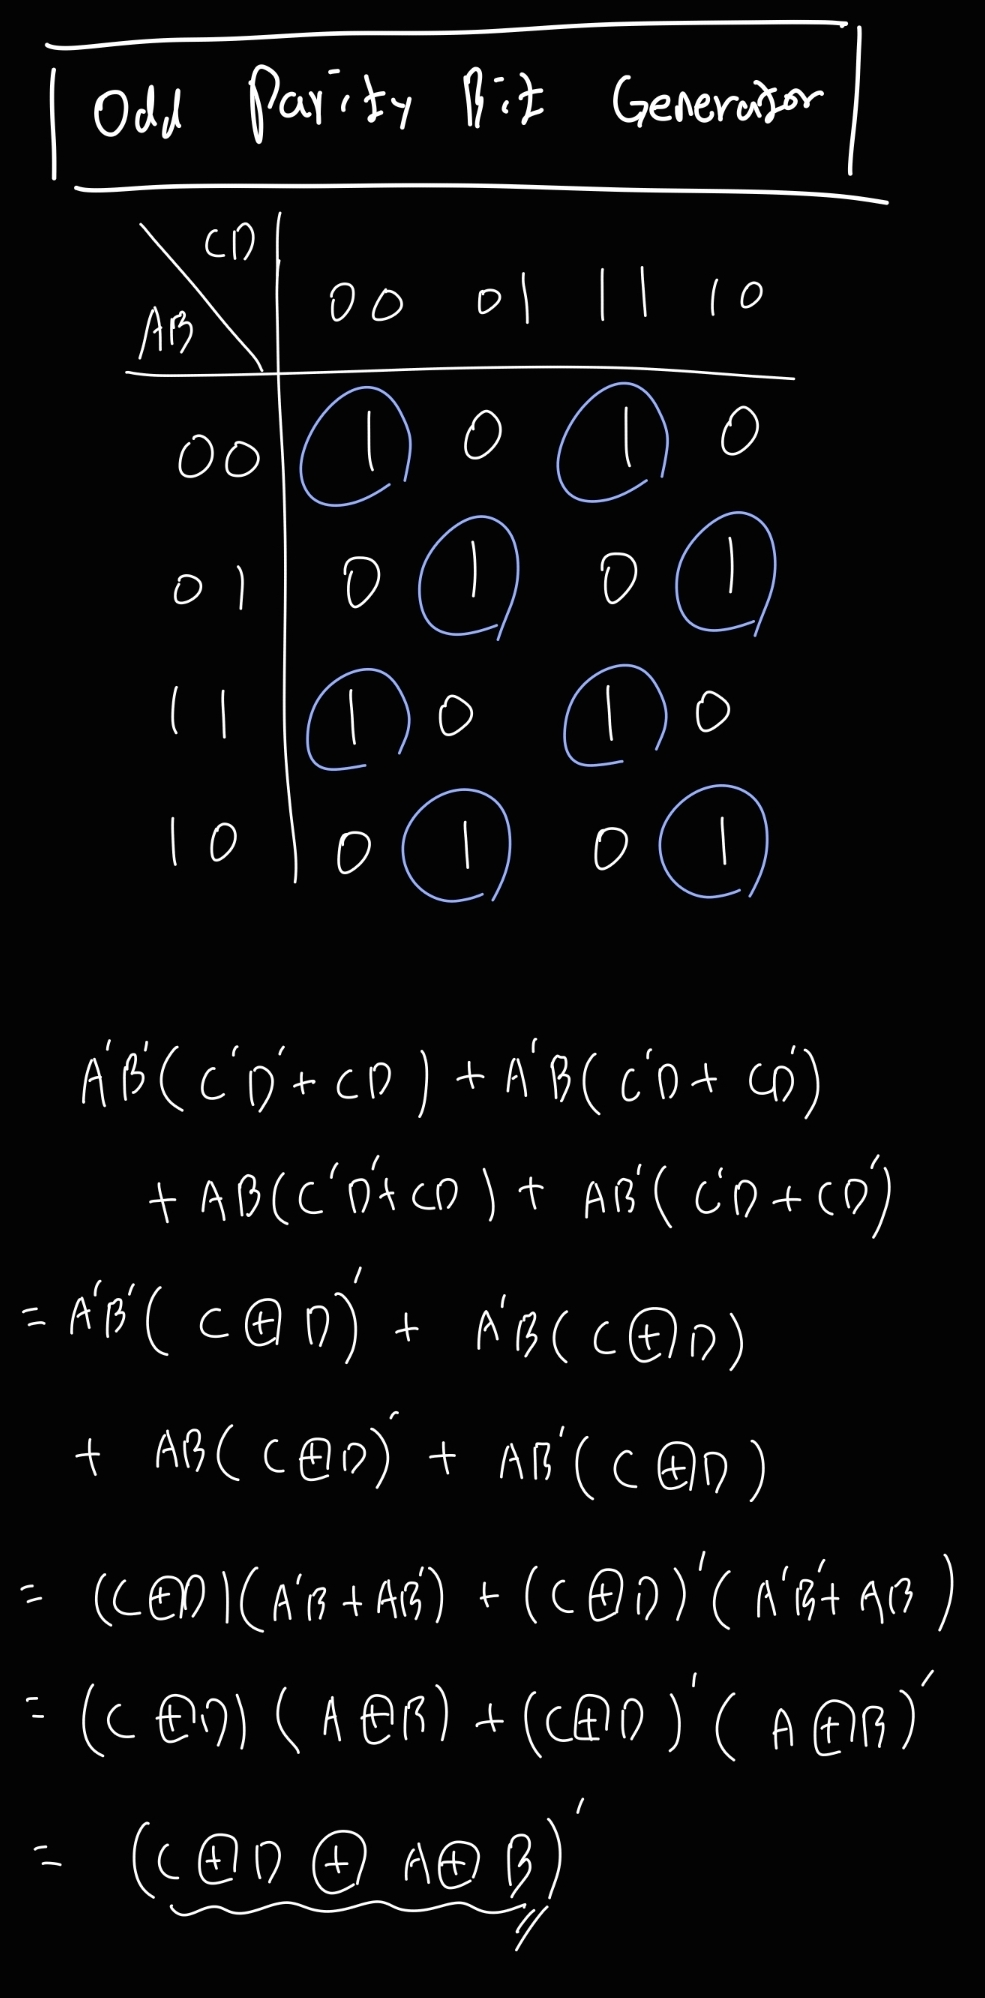 Odd Parity Bit Generator
CD
AB
00 01 11 10
00 1 0 1 0
01 0 1 0 1
11 1 0 1 0
10 0 1 0 1
A'B'(C'D'+CD) + A'B(C'D+CD')
+ AB(C'D'+CD) + AB'(C'D+CD')
= A'B'(C⊕D)' + A'B(C⊕D)
+ AB(C⊕D)' + AB'(C⊕D)
= (C⊕D)(A'B+AB') + (C⊕D)'(A'B'+AB)
= (C⊕D)(A⊕B) + (C⊕D)'(A⊕B)'
= (C⊕D⊕A⊕B)'